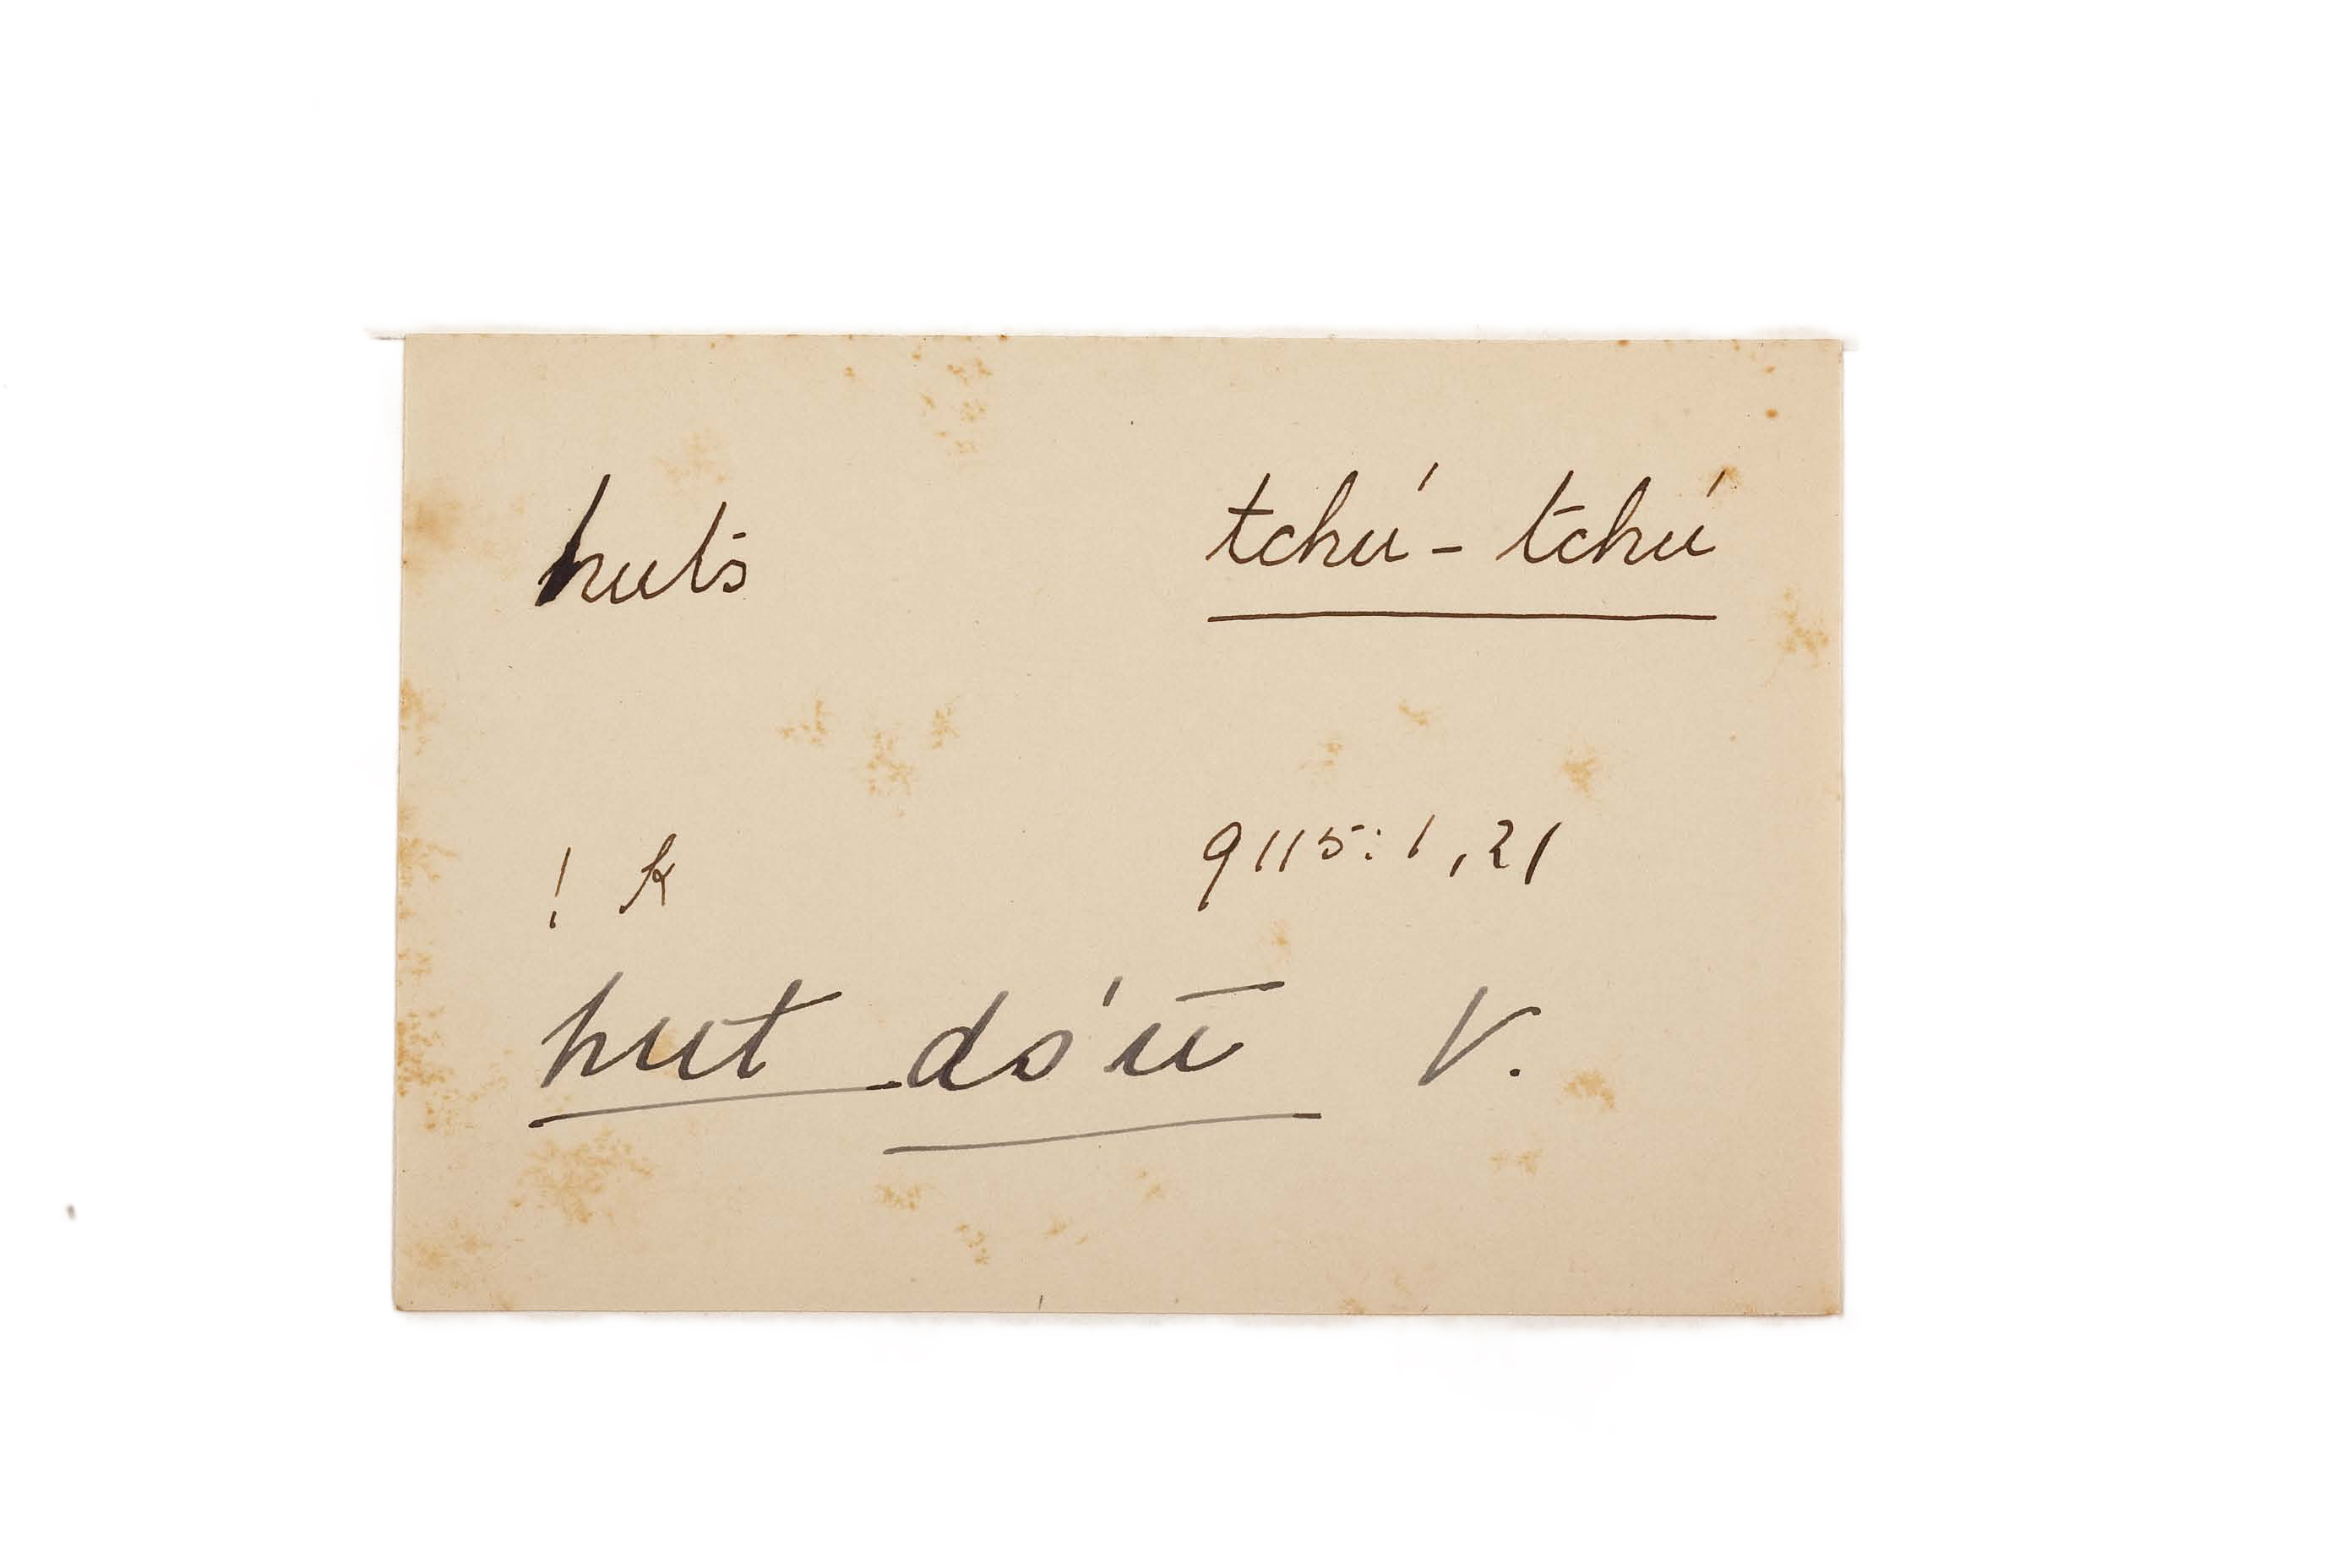 huts tchú - tchú
! k 9115: 1, 21
hut ds'ū V.